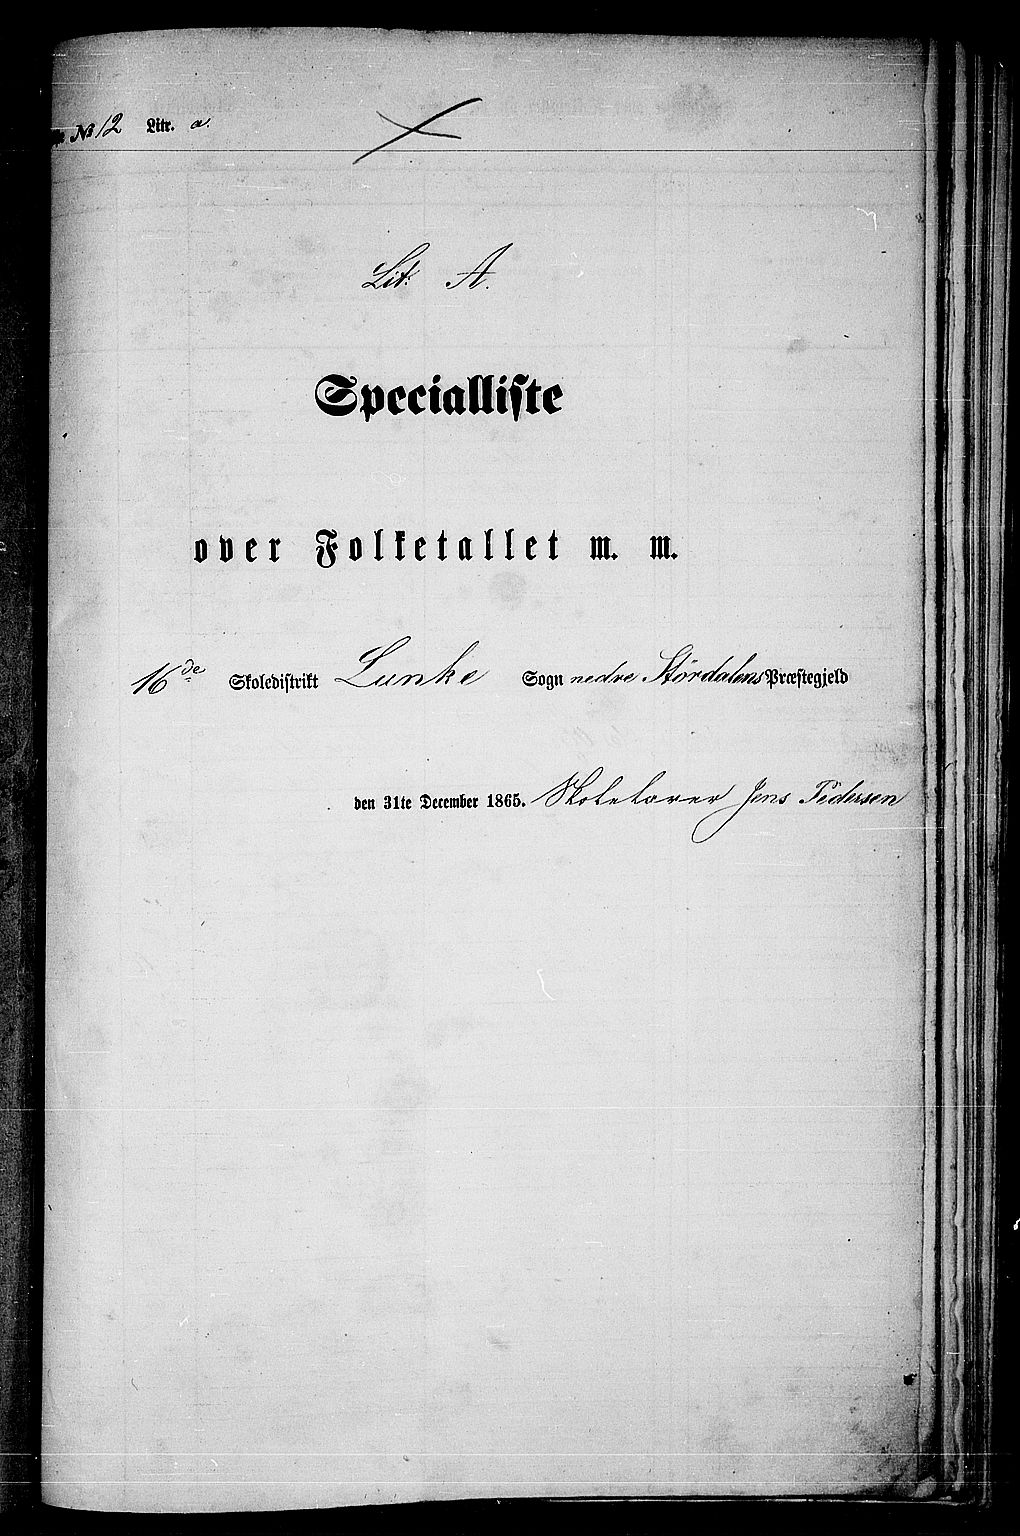 № 12 Litr. a.
Lit: A.
Specialliste
over Folketallet m. m.
16de Skoledistrikt Lunke Sogn nedre Størdalens Præstegjeld
den 31te December 1865. Skolelærer Jens Pedersen